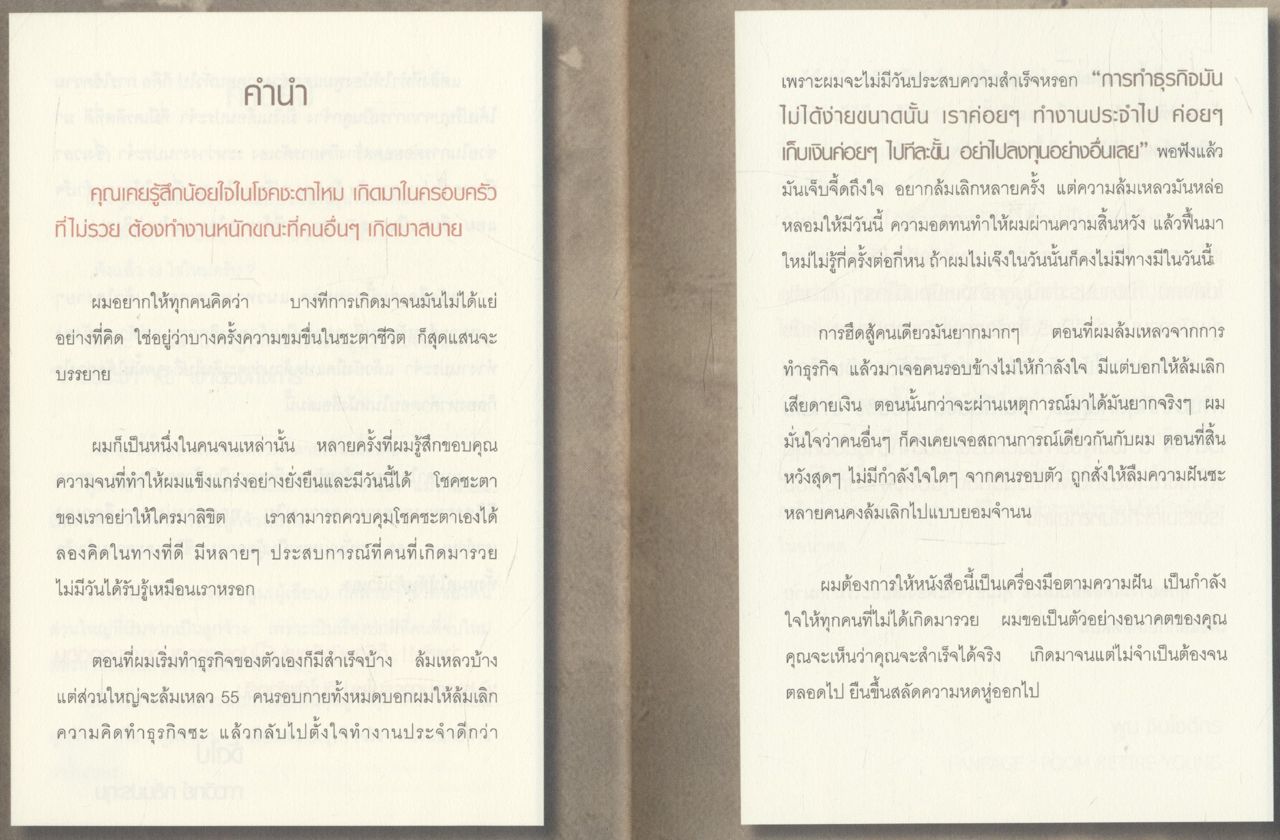 คำนำ
คุณเคยรู้สึกน้อยใจในโชคชะตาไหม เกิดมาในครอบครัว
ที่ไม่รวย ต้องทำงานหนักขณะที่คนอื่นๆ เกิดมาสบาย
ผมอยากให้ทุกคนคิดว่า บางทีการเกิดมาจนมันไม่ได้แย่
อย่างที่คิด ใช่อยู่ว่าบางครั้งความขมขื่นในชะตาชีวิต ก็สุดแสนจะ
บรรยาย
ผมก็เป็นหนึ่งในคนจนเหล่านั้น หลายครั้งที่ผมรู้สึกขอบคุณ
ความจนที่ทำให้ผมแข็งแกร่งอย่างยั่งยืนและมีวันนี้ได้ โชคชะตา
ของเราอย่าให้ใครมาลิขิต เราสามารถควบคุมโชคชะตาเองได้
ลองคิดในทางที่ดี มีหลายๆ ประสบการณ์ที่คนที่เกิดมารวย
ไม่มีวันได้รับรู้เหมือนเราหรอก
ตอนที่ผมเริ่มทำธุรกิจของตัวเองก็มีสำเร็จบ้าง ล้มเหลวบ้าง
แต่ส่วนใหญ่จะล้มเหลว 55 คนรอบกายทั้งหมดบอกผมให้ล้มเลิก
ความคิดทำธุรกิจซะ แล้วกลับไปตั้งใจทำงานประจำดีกว่า
เพราะผมจะไม่มีวันประสบความสำเร็จหรอก “การทำธุรกิจมัน
ไม่ได้ง่ายขนาดนั้น เราค่อยๆ ทำงานประจำไป ค่อยๆ
เก็บเงินค่อยๆ ไปทีละขั้น อย่าไปลงทุนอย่างอื่นเลย” พอฟังแล้ว
มันเจ็บจี้ดถึงใจ อยากล้มเลิกหลายครั้ง แต่ความล้มเหลวมันหล่อ
หลอมให้มีวันนี้ ความอดทนทำให้ผมผ่านความสิ้นหวัง แล้วฟื้นมา
ใหม่ไม่รู้กี่ครั้งต่อกี่หน ถ้าผมไม่เจ๊งในวันนั้นก็คงไม่มีทางมีในวันนี้
การฮึดสู้คนเดียวมันยากมากๆ ตอนที่ผมล้มเหลวจากการ
ทำธุรกิจ แล้วมาเจอคนรอบข้างไม่ให้กำลังใจ มีแต่บอกให้ล้มเลิก
เสียดายเงิน ตอนนั้นกว่าจะผ่านเหตุการณ์มาได้มันยากจริงๆ ผม
มั่นใจว่าคนอื่นๆ ก็คงเคยเจอสถานการณ์เดียวกันกับผม ตอนที่สิ้น
หวังสุดๆ ไม่มีกำลังใจใดๆ จากคนรอบตัว ถูกสั่งให้ลืมความฝันซะ
หลายคนคงล้มเลิกไปแบบยอมจำนน
ผมต้องการให้หนังสือนี้เป็นเครื่องมือตามความฝัน เป็นกำลัง
ใจให้ทุกคนที่ไม่ได้เกิดมารวย ผมขอเป็นตัวอย่างอนาคตของคุณ
คุณจะเห็นว่าคุณจะสำเร็จได้จริง เกิดมาจนแต่ไม่จำเป็นต้องจน
ตลอดไป ยืนขึ้นสลัดความหดหู่ออกไป